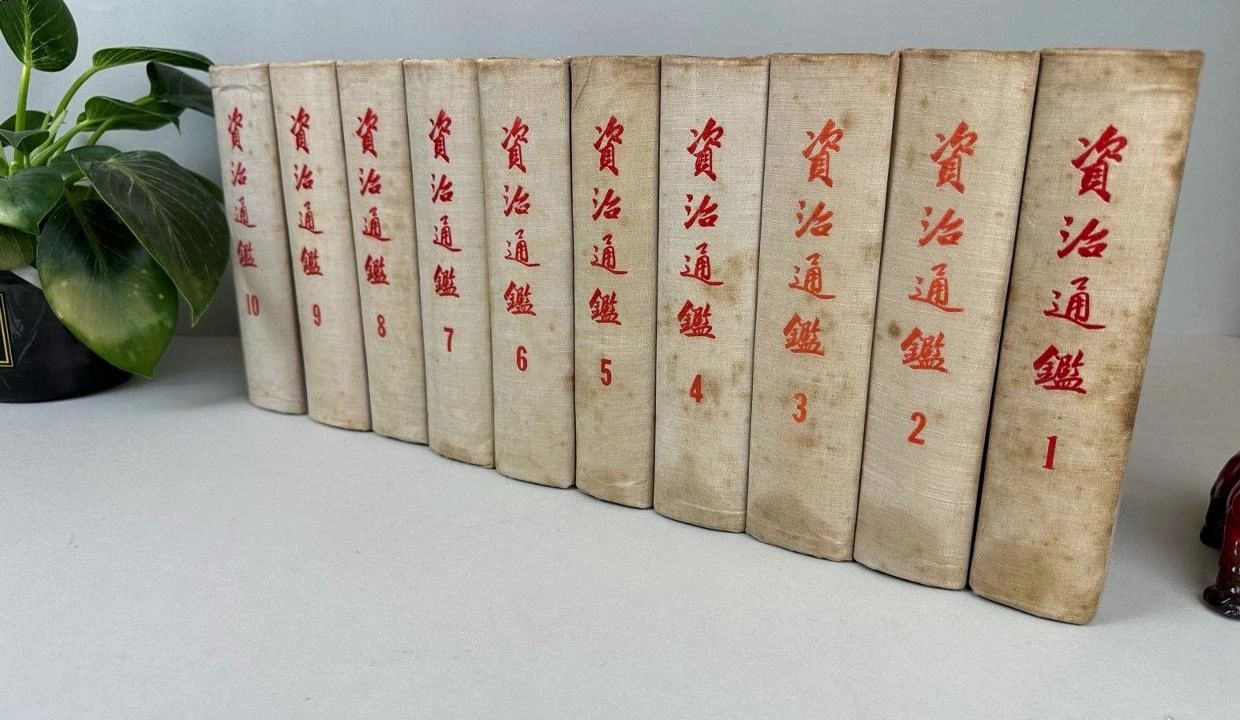 資治通鑑 10
資治通鑑 9
資治通鑑 8
資治通鑑 7
資治通鑑 6
資治通鑑 5
資治通鑑 4
資治通鑑 3
資治通鑑 2
資治通鑑 1